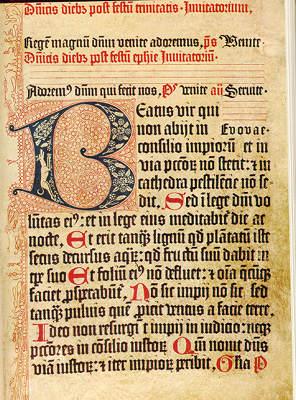 Dñicis diebꝰ post festũ trinitatis. Inuitatoriũm,
Regem magnũ dñm venite adoremus, ps̃ Venite.
Dñicis diebꝰ post festũ ephie Inuitatoriũ.
Adoremꝰ dñm qui fecit nos, Ps̃ venite añ Seruite.
Beatus vir qui
non abijt in Evovae
consilio impioruȝ et in
via pctõꝝ nõ stetit: ⁊ in
cathedra pestilẽtie nõ se-
dit, Sed ĩ lege dñi vo
lũtas eiꝰ: et in lege eius meditabit̃ die ac
nocte, Et erit tanq̃ȝ lignũ qd̃ plãtatũ ẽ iste
secus decursus aq̃ꝝ: qd̃ fructũ suũ dabit in
tp̃e suo Et foliũ eiꝰ nõ defluet: ⁊ oĩa q̃cũqȝ
faciet, ꝓsperabũt̃, Nõ sic impij nõ sic: sed
tanq̃ȝ puluis quẽ ꝓicit ventus a facie terre,
Ideo non resurgũt impij in iudicio: neqȝ
pctõres in cõsilio iustoꝝ, Qm̃ nouit dñs
viam iustoꝝ: ⁊ iter impioꝝ peribit, Gl̃a P